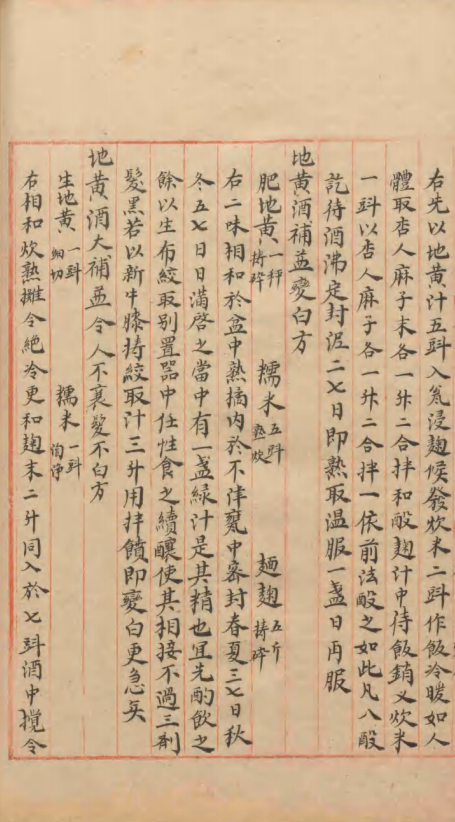 右先以地黃汁五㪷入瓮浸麹候發炊米二㪷作飯冷暖如人
體取杏人麻子末各一升二合拌和酘麹汁中待飯銷又炊米
一㪷以杏人麻子各一升二合拌一依前法酘之如此凡八酘
訖待酒沸定封泥二七日即熟取温服一盞日再服
地黃酒補益變白方
肥地黃一秤擣碎 糯米五㪷熟炊 麺麹五斤擣碎
右二味相和於盆中熟搗内於不津甕中密封春夏三七日秋
冬五七日日滿啓之當中有一盞緑汁是其精也宜先酌飲之
餘以生布絞取别置器中任性食之續釀使其相接不過三劑
髮黑若以新牛膝擣絞取汁三升用拌饋即變白更急矣
地黃酒大補益令人不衰髮不白方
生地黃一㪷細切 糯米一㪷淘淨
右相和炊熟攤令絶冷更和麹末二升同入於七㪷酒中攪令